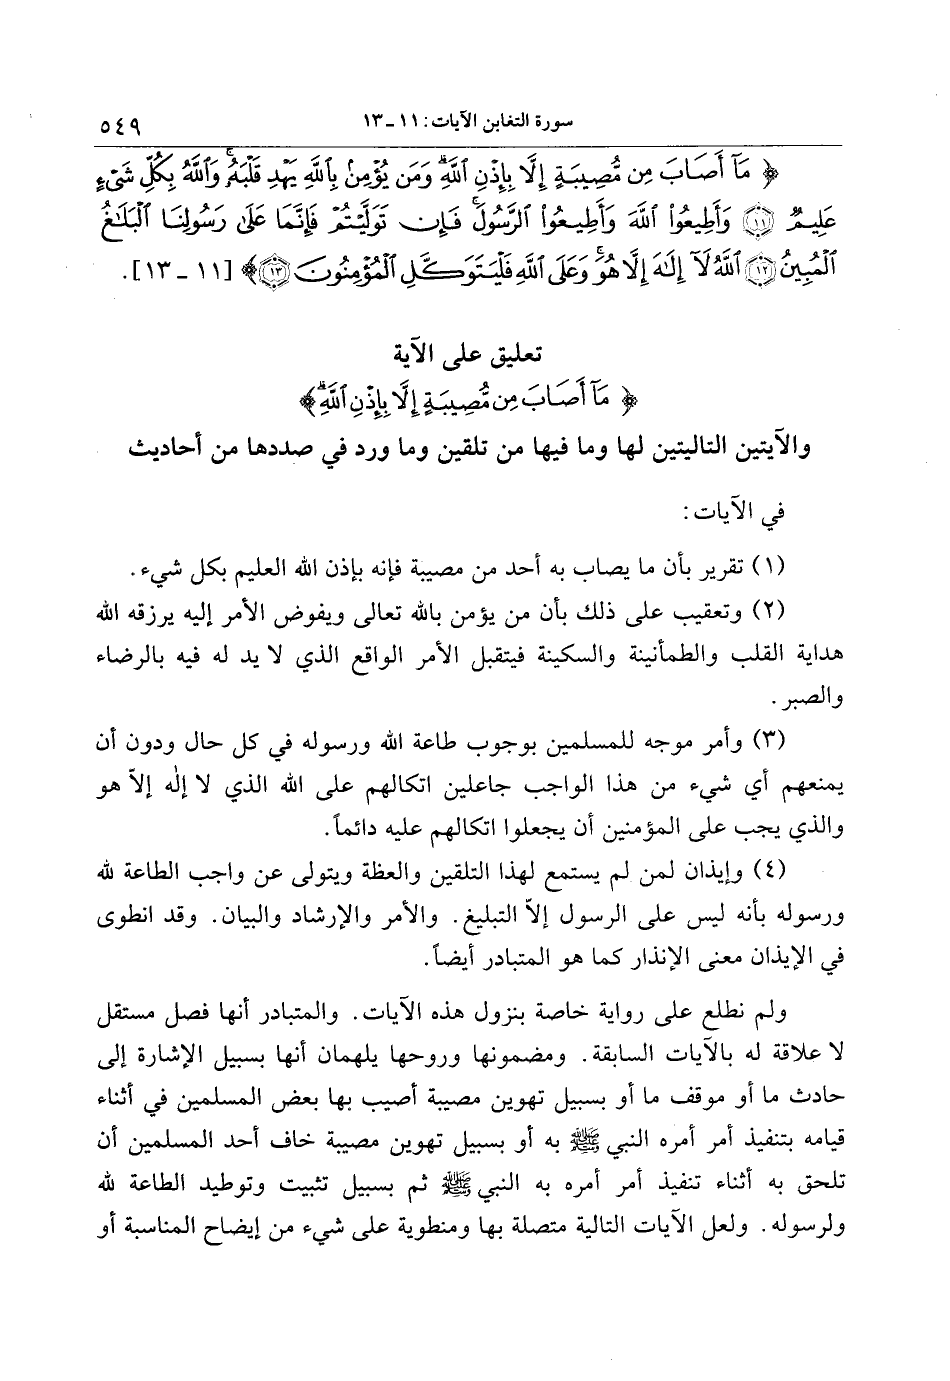 سورة التغابن الآيات: ١١ ـ ١٣ ٥٤٩
﴿ مَآ أَصَابَ مِن مُّصِيبَةٍ إِلَّا بِإِذْنِ ٱللَّهِۗ وَمَن يُؤْمِنۢ بِٱللَّهِ يَهْدِ قَلْبَهُۥۚ وَٱللَّهُ بِكُلِّ شَىْءٍ
عَلِيمٌ ۝١١ وَأَطِيعُوا۟ ٱللَّهَ وَأَطِيعُوا۟ ٱلرَّسُولَۚ فَإِن تَوَلَّيْتُمْ فَإِنَّمَا عَلَىٰ رَسُولِنَا ٱلْبَلَٰغُ
ٱلْمُبِينُ ۝١٢ ٱللَّهُ لَآ إِلَٰهَ إِلَّا هُوَۚ وَعَلَى ٱللَّهِ فَلْيَتَوَكَّلِ ٱلْمُؤْمِنُونَ ۝١٣﴾ [١١ ـ ١٣].
تعليق على الآية
﴿ مَآ أَصَابَ مِن مُّصِيبَةٍ إِلَّا بِإِذْنِ ٱللَّهِۗ ﴾
والآيتين التاليتين لها وما فيها من تلقين وما ورد في صددها من أحاديث
في الآيات:
(١) تقرير بأن ما يصاب به أحد من مصيبة فإنه بإذن الله العليم بكل شيء.
(٢) وتعقيب على ذلك بأن من يؤمن بالله تعالى ويفوض الأمر إليه يرزقه الله
هداية القلب والطمأنينة والسكينة فيتقبل الأمر الواقع الذي لا يد له فيه بالرضاء
والصبر.
(٣) وأمر موجه للمسلمين بوجوب طاعة الله ورسوله في كل حال ودون أن
يمنعهم أي شيء من هذا الواجب جاعلين اتكالهم على الله الذي لا إلٰه إلاّ هو
والذي يجب على المؤمنين أن يجعلوا اتكالهم عليه دائماً.
(٤) وإيذان لمن لم يستمع لهذا التلقين والعظة ويتولى عن واجب الطاعة لله
ورسوله بأنه ليس على الرسول إلاّ التبليغ. والأمر والإرشاد والبيان. وقد انطوى
في الإيذان معنى الإنذار كما هو المتبادر أيضاً.
ولم نطلع على رواية خاصة بنزول هذه الآيات. والمتبادر أنها فصل مستقل
لا علاقة له بالآيات السابقة. ومضمونها وروحها يلهمان أنها بسبيل الإشارة إلى
حادث ما أو موقف ما أو بسبيل تهوين مصيبة أصيب بها بعض المسلمين في أثناء
قيامه بتنفيذ أمر أمره النبي ﷺ به أو بسبيل تهوين مصيبة خاف أحد المسلمين أن
تلحق به أثناء تنفيذ أمر أمره به النبي ﷺ ثم بسبيل تثبيت وتوطيد الطاعة لله
ولرسوله. ولعل الآيات التالية متصلة بها ومنطوية على شيء من إيضاح المناسبة أو